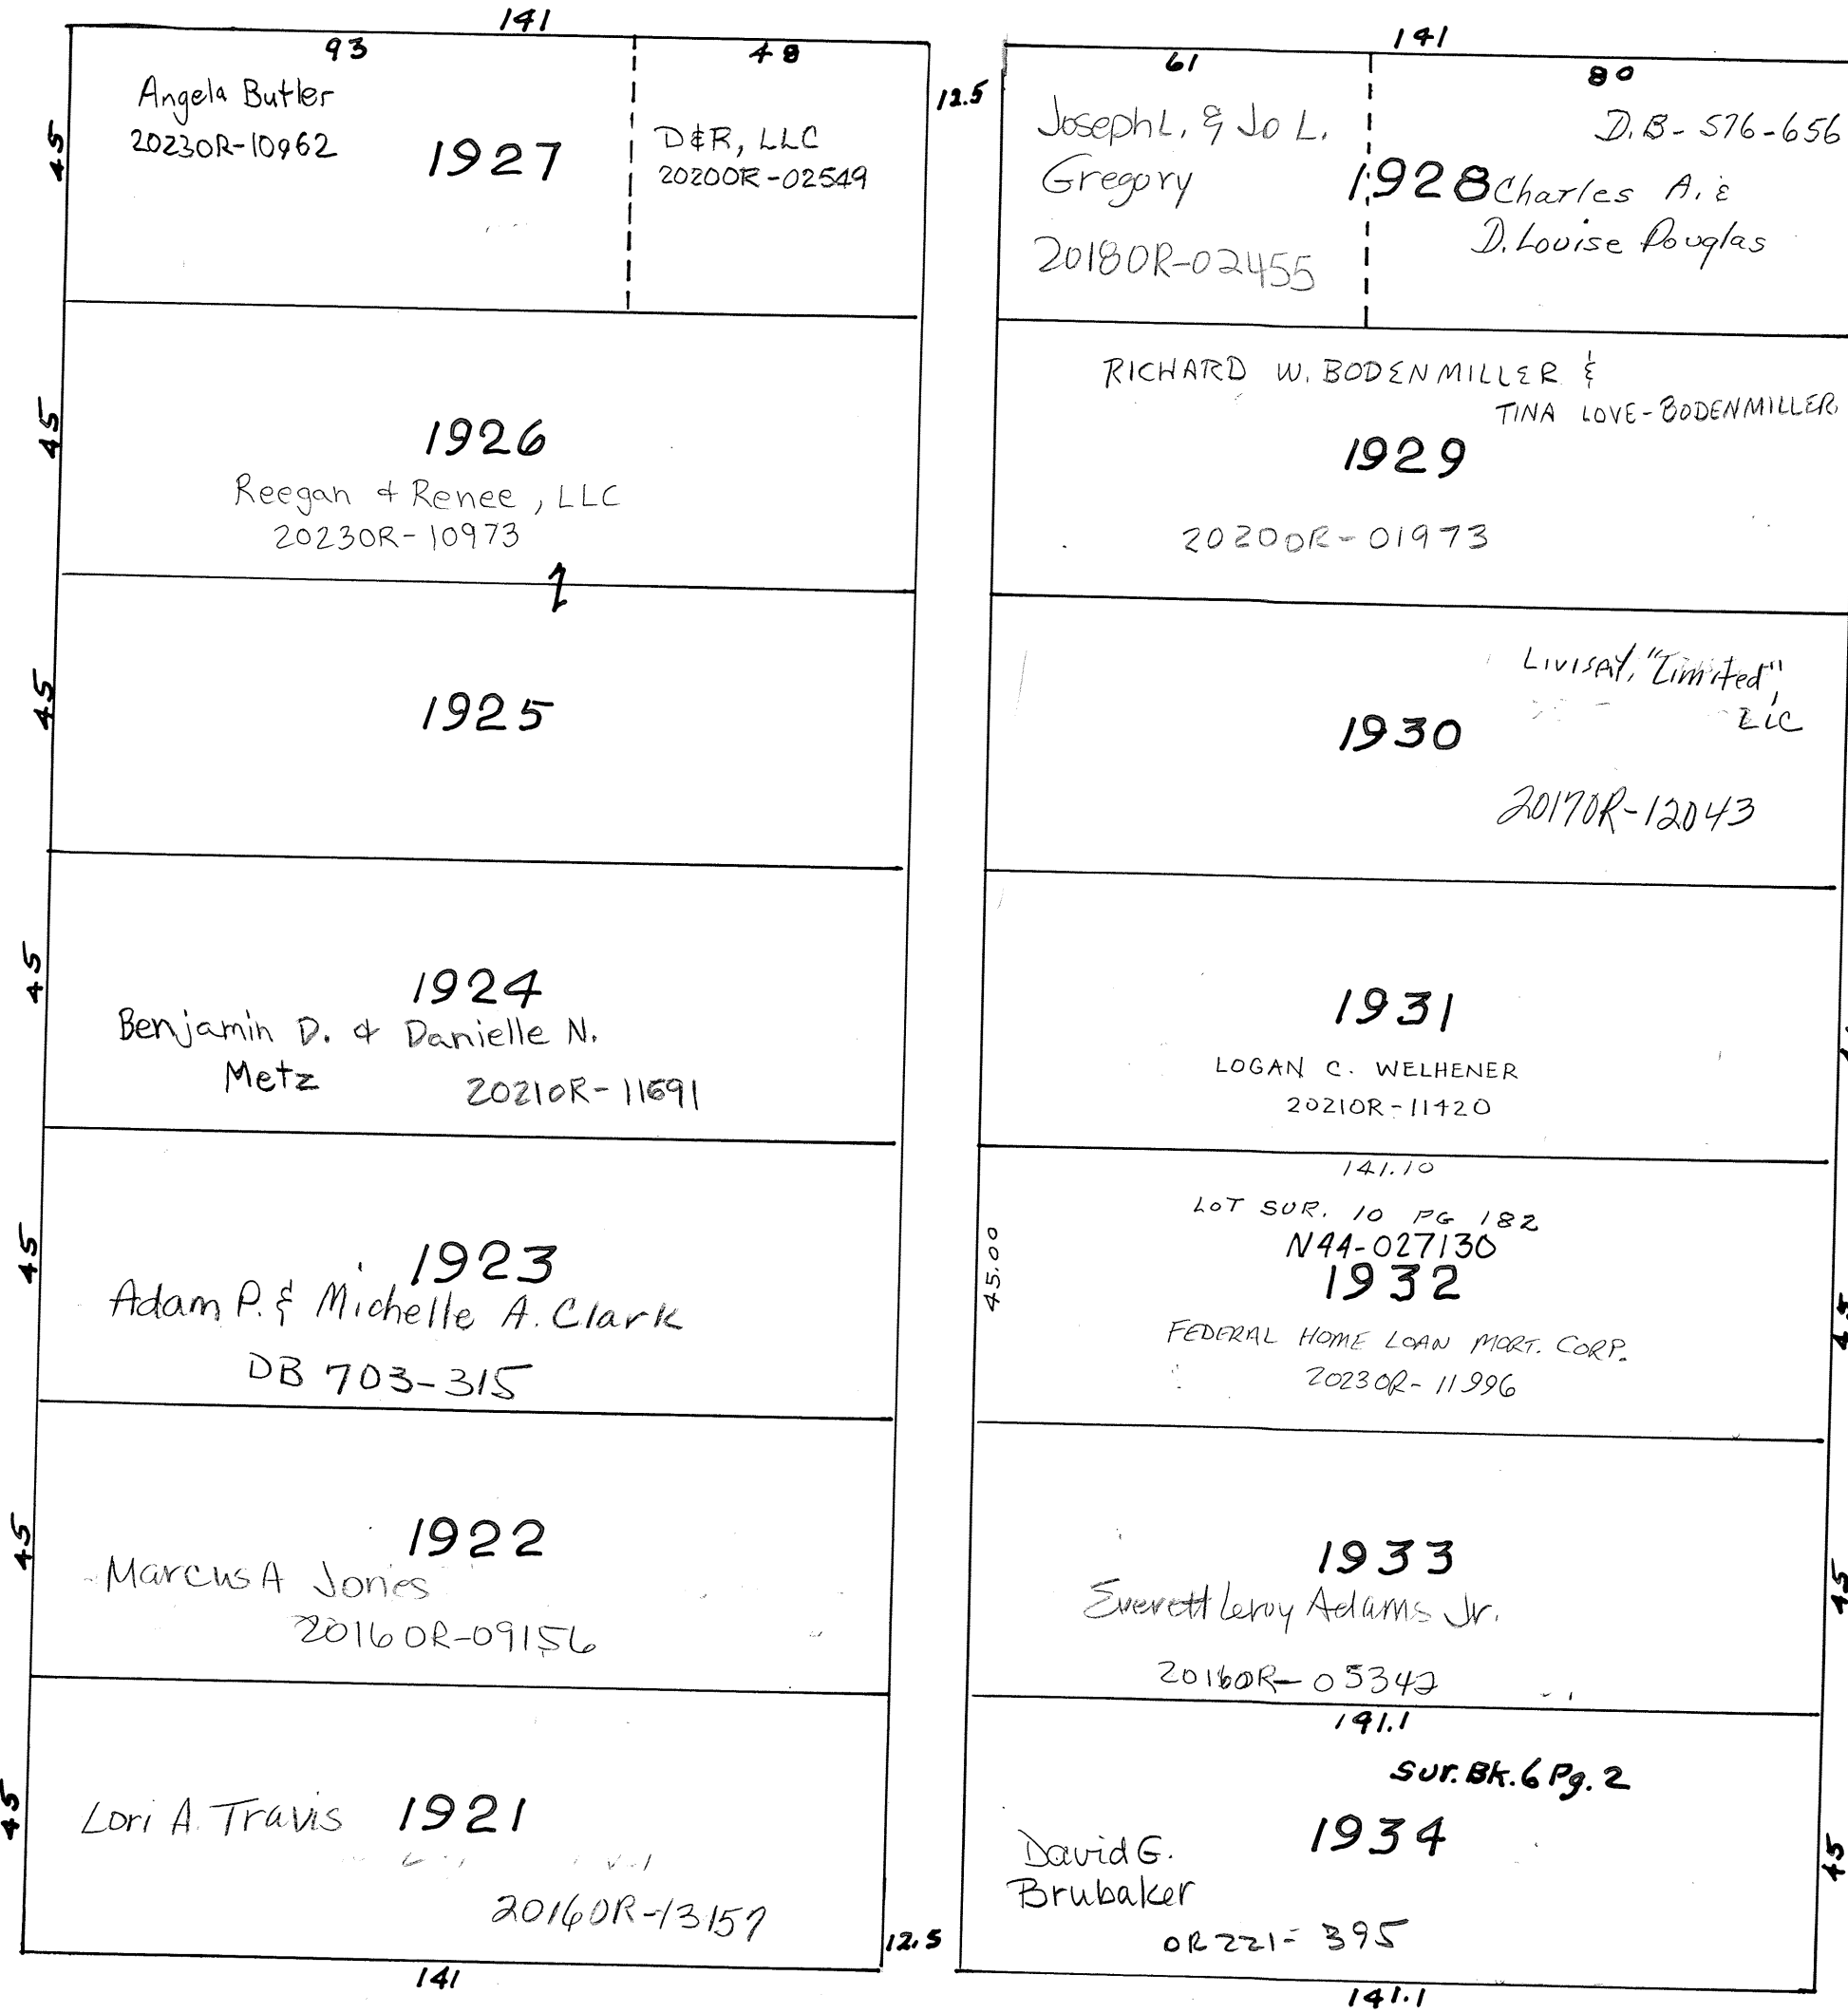 141
93
48
Angela Butler
2023OR-10962
1927
D&R, LLC
2020OR-02549
45
12.5
45
1926
Reegan & Renee, LLC
2023OR-10973
45
1925
45
1924
Benjamin D. & Danielle N.
Metz 2021OR-11691
45
1923
Adam P. & Michelle A. Clark
DB 703-315
45
1922
Marcus A Jones
2016OR-09156
45
Lori A. Travis 1921
2016OR-13157
12.5
141
141
61
80
Joseph L. & Jo L.
Gregory
2018OR-02455
D.B-576-656
1928
Charles A. &
D. Louise Douglas
RICHARD W. BODENMILLER &
TINA LOVE-BODENMILLER
1929
2020OR-01973
LIVISAY, "Limited",
LLC
1930
2017OR-12043
1931
LOGAN C. WELHENER
2021OR-11420
141.10
LOT SUR. 10 PG 182
N44-027130
1932
45.00
45
FEDERAL HOME LOAN MORT. CORP.
2023OR-11996
1933
45
Everett Leroy Adams Jr.
2016OR-05342
141.1
Sur. Bk. 6 Pg. 2
1934
45
David G.
Brubaker
OR 221-395
141.1